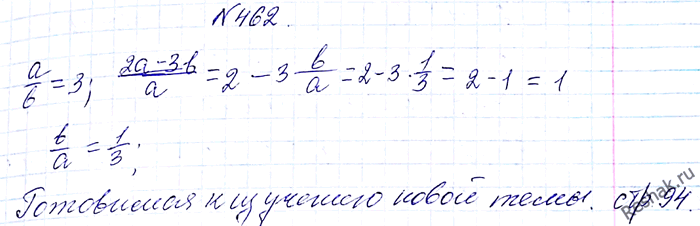 №462.
a/b = 3; (2a-3b)/a = 2 - 3·b/a = 2-3·1/3 = 2-1 = 1
b/a = 1/3;
Готовимся к изучению новой темы. стр 94.
Reshak.ru